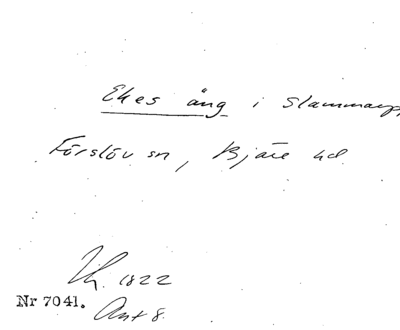 Ekes äng i Slammarp,
Förslöv sn, Bjäre hd.
1822
Nr 7041.
Ant 8.